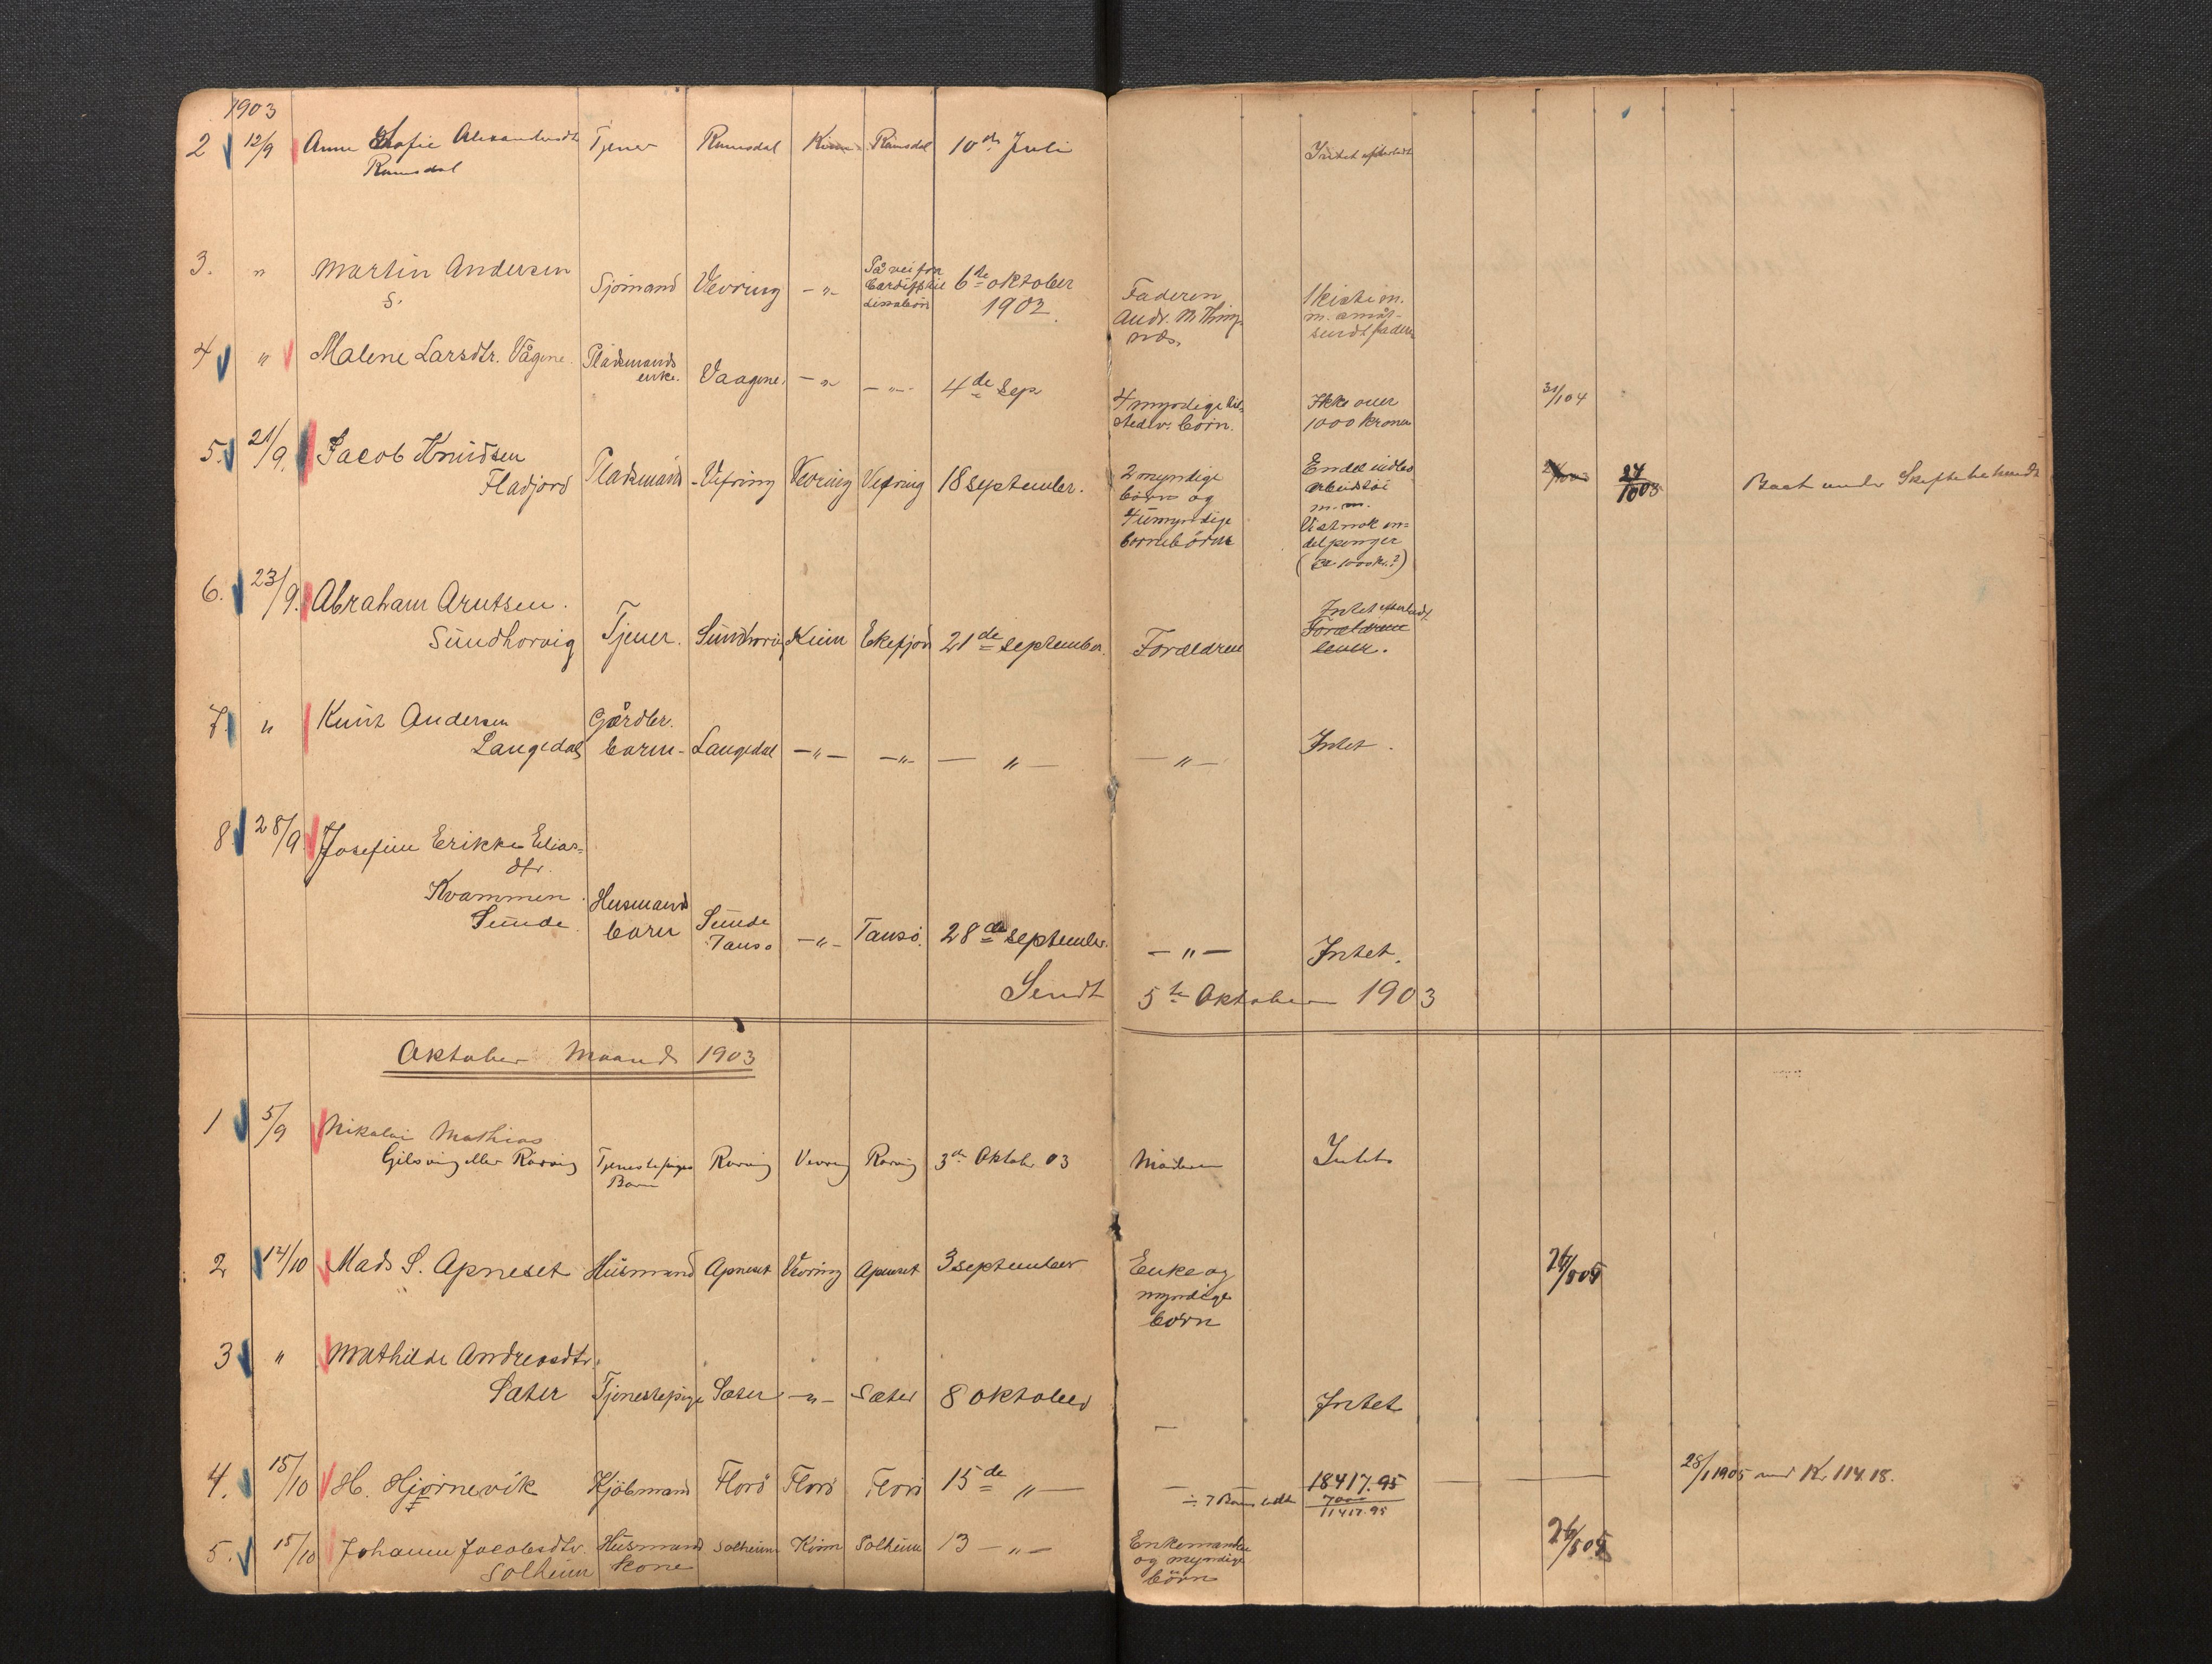 1903
2 12/9 Anne Sofie Alexandersdtr Tjener Ramsdal Kinn Ramsdal 10de Juli Intet efterladt
Ramsdal
3. " Martin Andersen Sjömand Vevring -"- På vei fra Cardiff til 6te oktober 1902 Faderen Andr. M. 1 kiste m. m. småt- sendt faderen
S.
4 " Malene Larsdtr. Vågene. Pladsmands enke. Vaagene. -"- -"- 4de Sep 4 myndige til- stedv. börn. Ikke over 1000 kroner 31/1 04
5. 21/9. Jacob Knudsen
Fladjord Pladsmand Vefring Vevring Vefring 18 september. 2 myndige börn og 4 umyndige börnebörn Endel indbo arbeidstöi m.m. Vistnok en- del penger (ca 1000 kr.?) 24/10 03 Boet under Skiftebehandl
6. 23/9. Abraham Arntsen.
Sündhorvig Tjener. Sündhorvig Kinn Eikefjord 21de september. Forældrene Intet efterladt
Forældrene
lever.
7. " Knut Andersen Gårdbr.
Langedal barn - Langedal -"- -"- - " - - " - Intet.
8. 28/9 Josefine Erikke Elias-
dtr.
Kvammen Husmands
Sunde. barn Sunde Tansö -"- Tansö. 28de september. - " - Intet.
Sendt 5te Oktober 1903
Oktober Maaned 1903
1 5/9 Nikolai Mathias
Gilsvig eller Rörvig Tjenestepiges Barn Rörvig Vevring Rörvig 3de Oktobr 03 Moderen Intet
2 12/10 Mads S. Apneset Husmand Apneset Vevring Apneset 3 september Enke og myndige börn 26/5 05
3 " Mathilde Andreasdtr.
Sæter Tjenestepige Sæter -"- Sæter 8 oktober - Intet
4. 15/10 H. Hjörnevik Kjöbmand Florö Florö Florö 15de "- - 18417.95 28/1 1905 med Kr. 114.18.
÷ 7000
11417.95
5. 15/10 Johanne Jacobsdtr. Husmands Solheim Kinn Solheim 13 -"- Enkemanden og myndige börn 26/5 05
Solheim kone